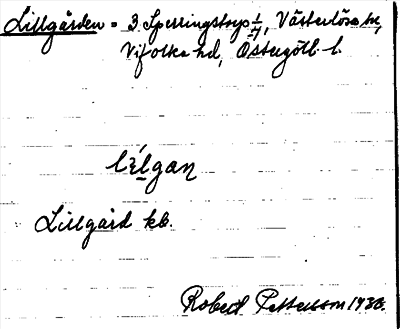 Lillgården = 3 Sperringstorp 1/4, Västerlösa sn,
Vifolka hd, Östergötl. l.
lìlgan
Lillgård kb.
Robert Pettersson 1930.